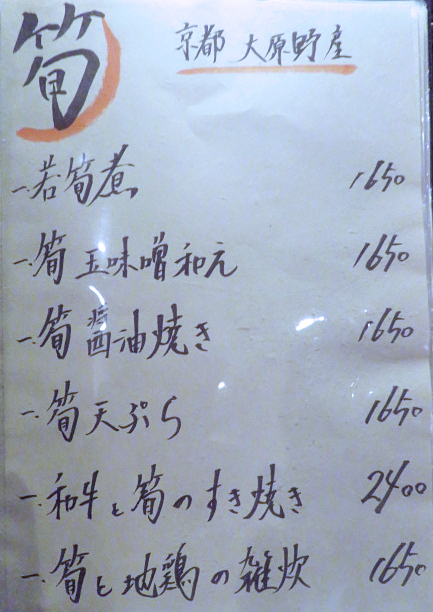 筍 京都 大原野産
一. 若筍煮 1650
一. 筍 玉味噌和え 1650
一. 筍 醤油焼き 1650
一. 筍天ぷら 1650
一. 和牛と筍のすき焼き 2400
一. 筍と地鶏の雑炊 1650